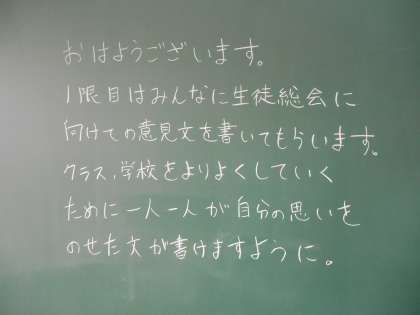 おはようございます。
1限目はみんなに生徒総会に
向けての意見文を書いてもらいます。
クラス、学校をよりよくしていく
ために一人一人が自分の思いを
のせた文が書けますように。